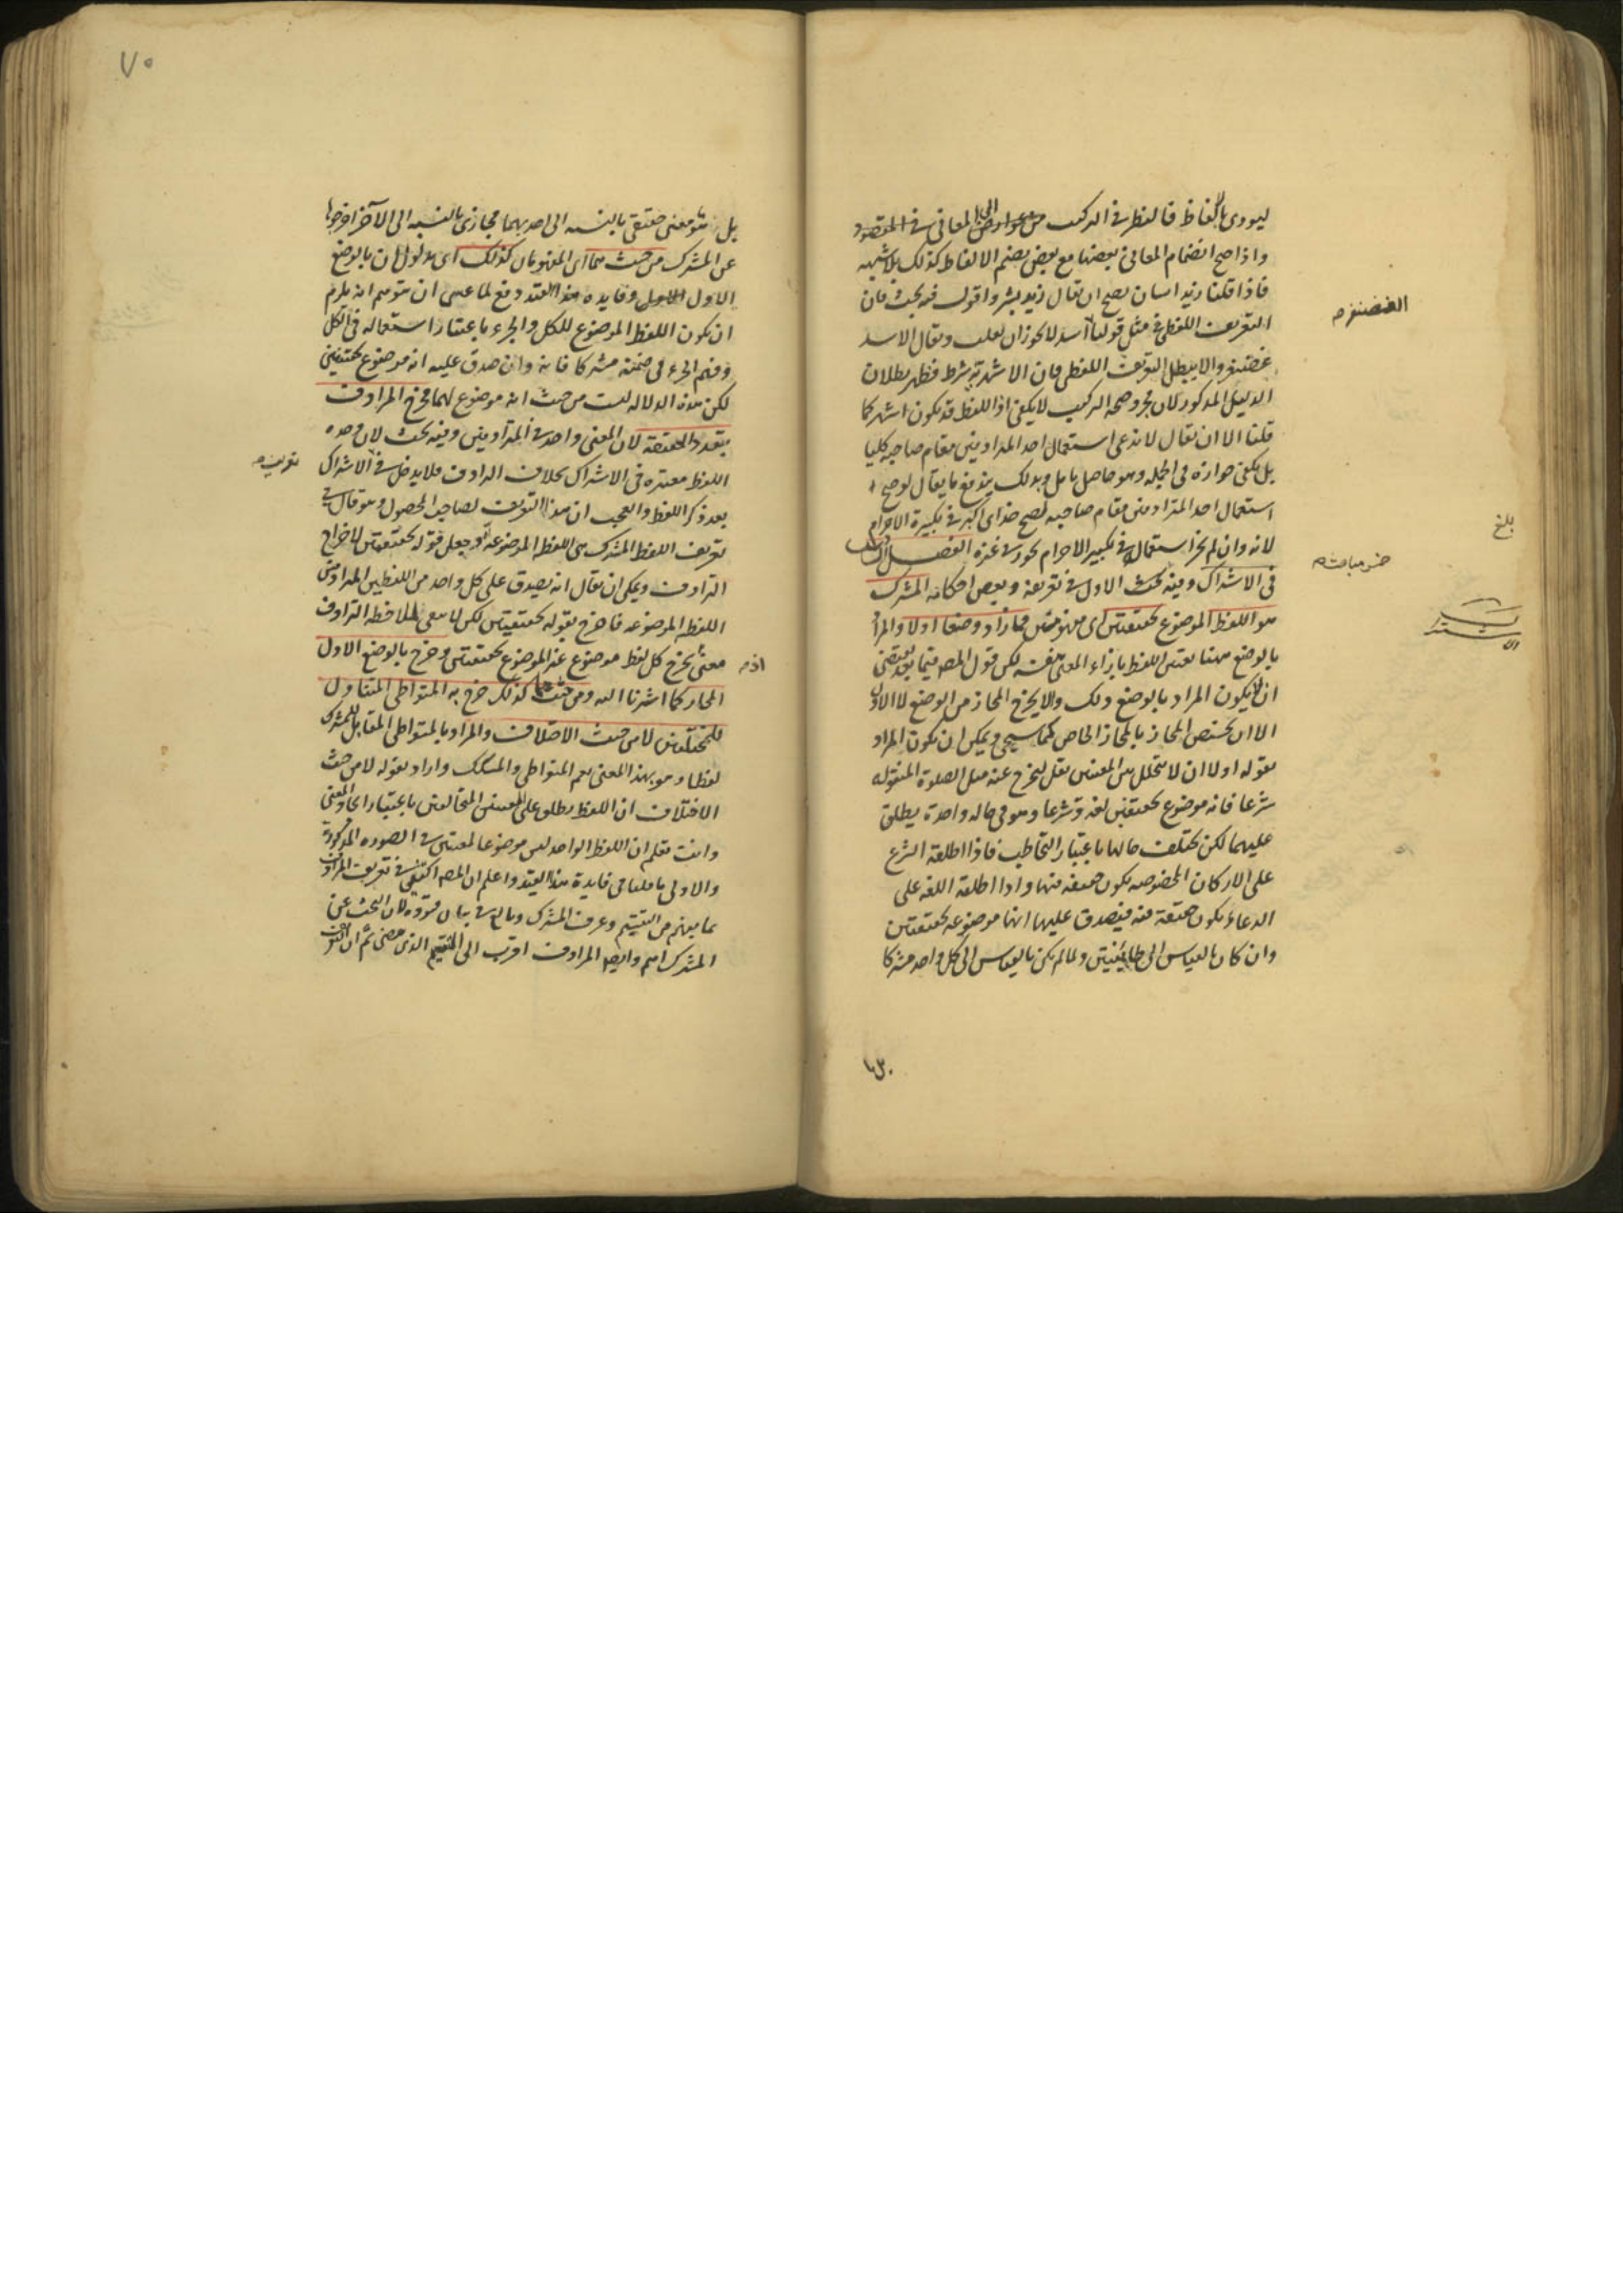 ليودى بالفاظ فالنظر فى التركيب من عوارض المعانى فى المقصود
واذا صح انضمام المعانى بعضها مع بعض يصح بضم الالفاظ كذلك بلا شبهه
فاذا قلنا زيد انسان يصح ان يقال زيد بشر واقول فيه بحث فان
التعريف اللفظى فى مثل قولنا اسد لا يجوز ان يقلب ويقال الاسد
الغضنفر
غضنفر والا يبطل التعريف اللفظى فان الاشهرية شرط فظهر بطلان
الدليل المذكور لان مجرد صحه التركيب لا يكفى اذ اللفظ قد يكون اشهر كما
قلنا الا ان يقال لا ندعى استعمال احد المترادفين مقام صاحبه كليا
بل يكفى جوازه فى الجمله وهو حاصل تامل وبذلك يندفع ما يقال لو صح
استعمال احد المترادفين مقام صاحبه لصح خداى اكبر فى تكبيرة الاحرام
بلغ
لانه وان لم يجز استعماله فى تكبير الاحرام يجوز فى غيره الفصل
فى الاشتراك وفيه بحث الاول فى تعريفه وبعض احكامه المشترك
هو اللفظ الموضوع لحقيقتين اى مفهومين فما زاد وضعا اولا والمراد
بالوضع ههنا تعيين اللفظ بازاء المعنى بنفسه لكن قول المص فيما بعد يقتضى
ان لا يكون المراد بالوضع ذلك والا لا يخرج المجاز من الوضع لا الاول
الا ان يختص المجاز بالمجاز الخاص كما سيجى ويمكن ان يكون المراد
بقوله اولا ان لا يتخلل بين المعنيين نقل ليخرج عنه مثل الصلوة المنقوله
شرعا فانه موضوع لحقيقتين لغة وشرعا وهو فى حاله واحدة يطلق
عليهما لكن يختلف حالها باعتبار التخاطب فاذا اطلقه الشرع
على الاركان المخصوصه يكون حقيقه فيها واذا اطلقه اللغه على
الدعاء يكون حقيقة فيه فيصدق عليها انها موضوعه لحقيقتين
وان كان بالقياس الى طائفتين ولما لم يكن بالقياس الى كل واحد مشتركا
بل
٧٠
بل هو معنى حقيقى بالنسبه الى احدهما مجازى بالنسبه الى الآخر اخرجها
عن المشترك من حيث هما اى المفهومان كذلك اى مدلولان بالوضع
الاول وفايده هذا القيد دفع لما عسى ان يتوهم انه يلزم
ان يكون اللفظ الموضوع للكل والجزء باعتبار استعماله فى الكل
وفهم الجزء فى ضمنه مشتركا فانه وان صدق عليه انه موضوع لحقيقتين
لكن هذه الدلاله ليست من حيث انه موضوع لهما فخرج المرادف
بتعدد الحقيقة لان المعنى واحد فى المترادفين وفيه بحث لان وحده
اللفظ معتبره فى الاشتراك بخلاف الترادف فلا يدخل فى الاشتراك
تعريفه
بعد ذكر اللفظ والعجب ان هذا التعريف لصاحب المحصول وهو قال فى
تعريف اللفظ المشترك هى اللفظ الموضوعة وجعل قوله لحقيقتين لاخراج
الترادف ويمكن ان يقال انه يصدق على كل واحد من اللفظين المترادفين
اللفظ الموضوعه فاخرج بقوله لحقيقتين لكن لا يبقى لملاحظه الترادف
معنى يخرج كل لفظ موضوع عن الموضوع لحقيقتين وخرج بالوضع الاول
المجاز كما اشرنا اليه ومن حيث هما كذلك خرج به المتواطى المتناول
للمختلفين لا من حيث الاختلاف والمراد بالمتواطى المقابل للمشترك
لفظا وهو بهذا المعنى يعم المتواطى والمشكك واراد بقوله لا من حيث
الاختلاف ان اللفظ يطلق على المعنيين المتخالفين باعتبار اتحاد المعنى
وانت تعلم ان اللفظ الواحد ليس موضوعا لمعنيين فى الصوره المذكورة
والاولى ما قلنا فى فايدة هذا القيد واعلم ان المص اكتفى فى تعريف المرادف
بما يفهم من التقسيم وعرف المشترك وبالغ فى بيان قيوده لان البحث عن
المشترك اهم وايضا المرادف اقرب الى التقسيم الذى مضى ثم ان